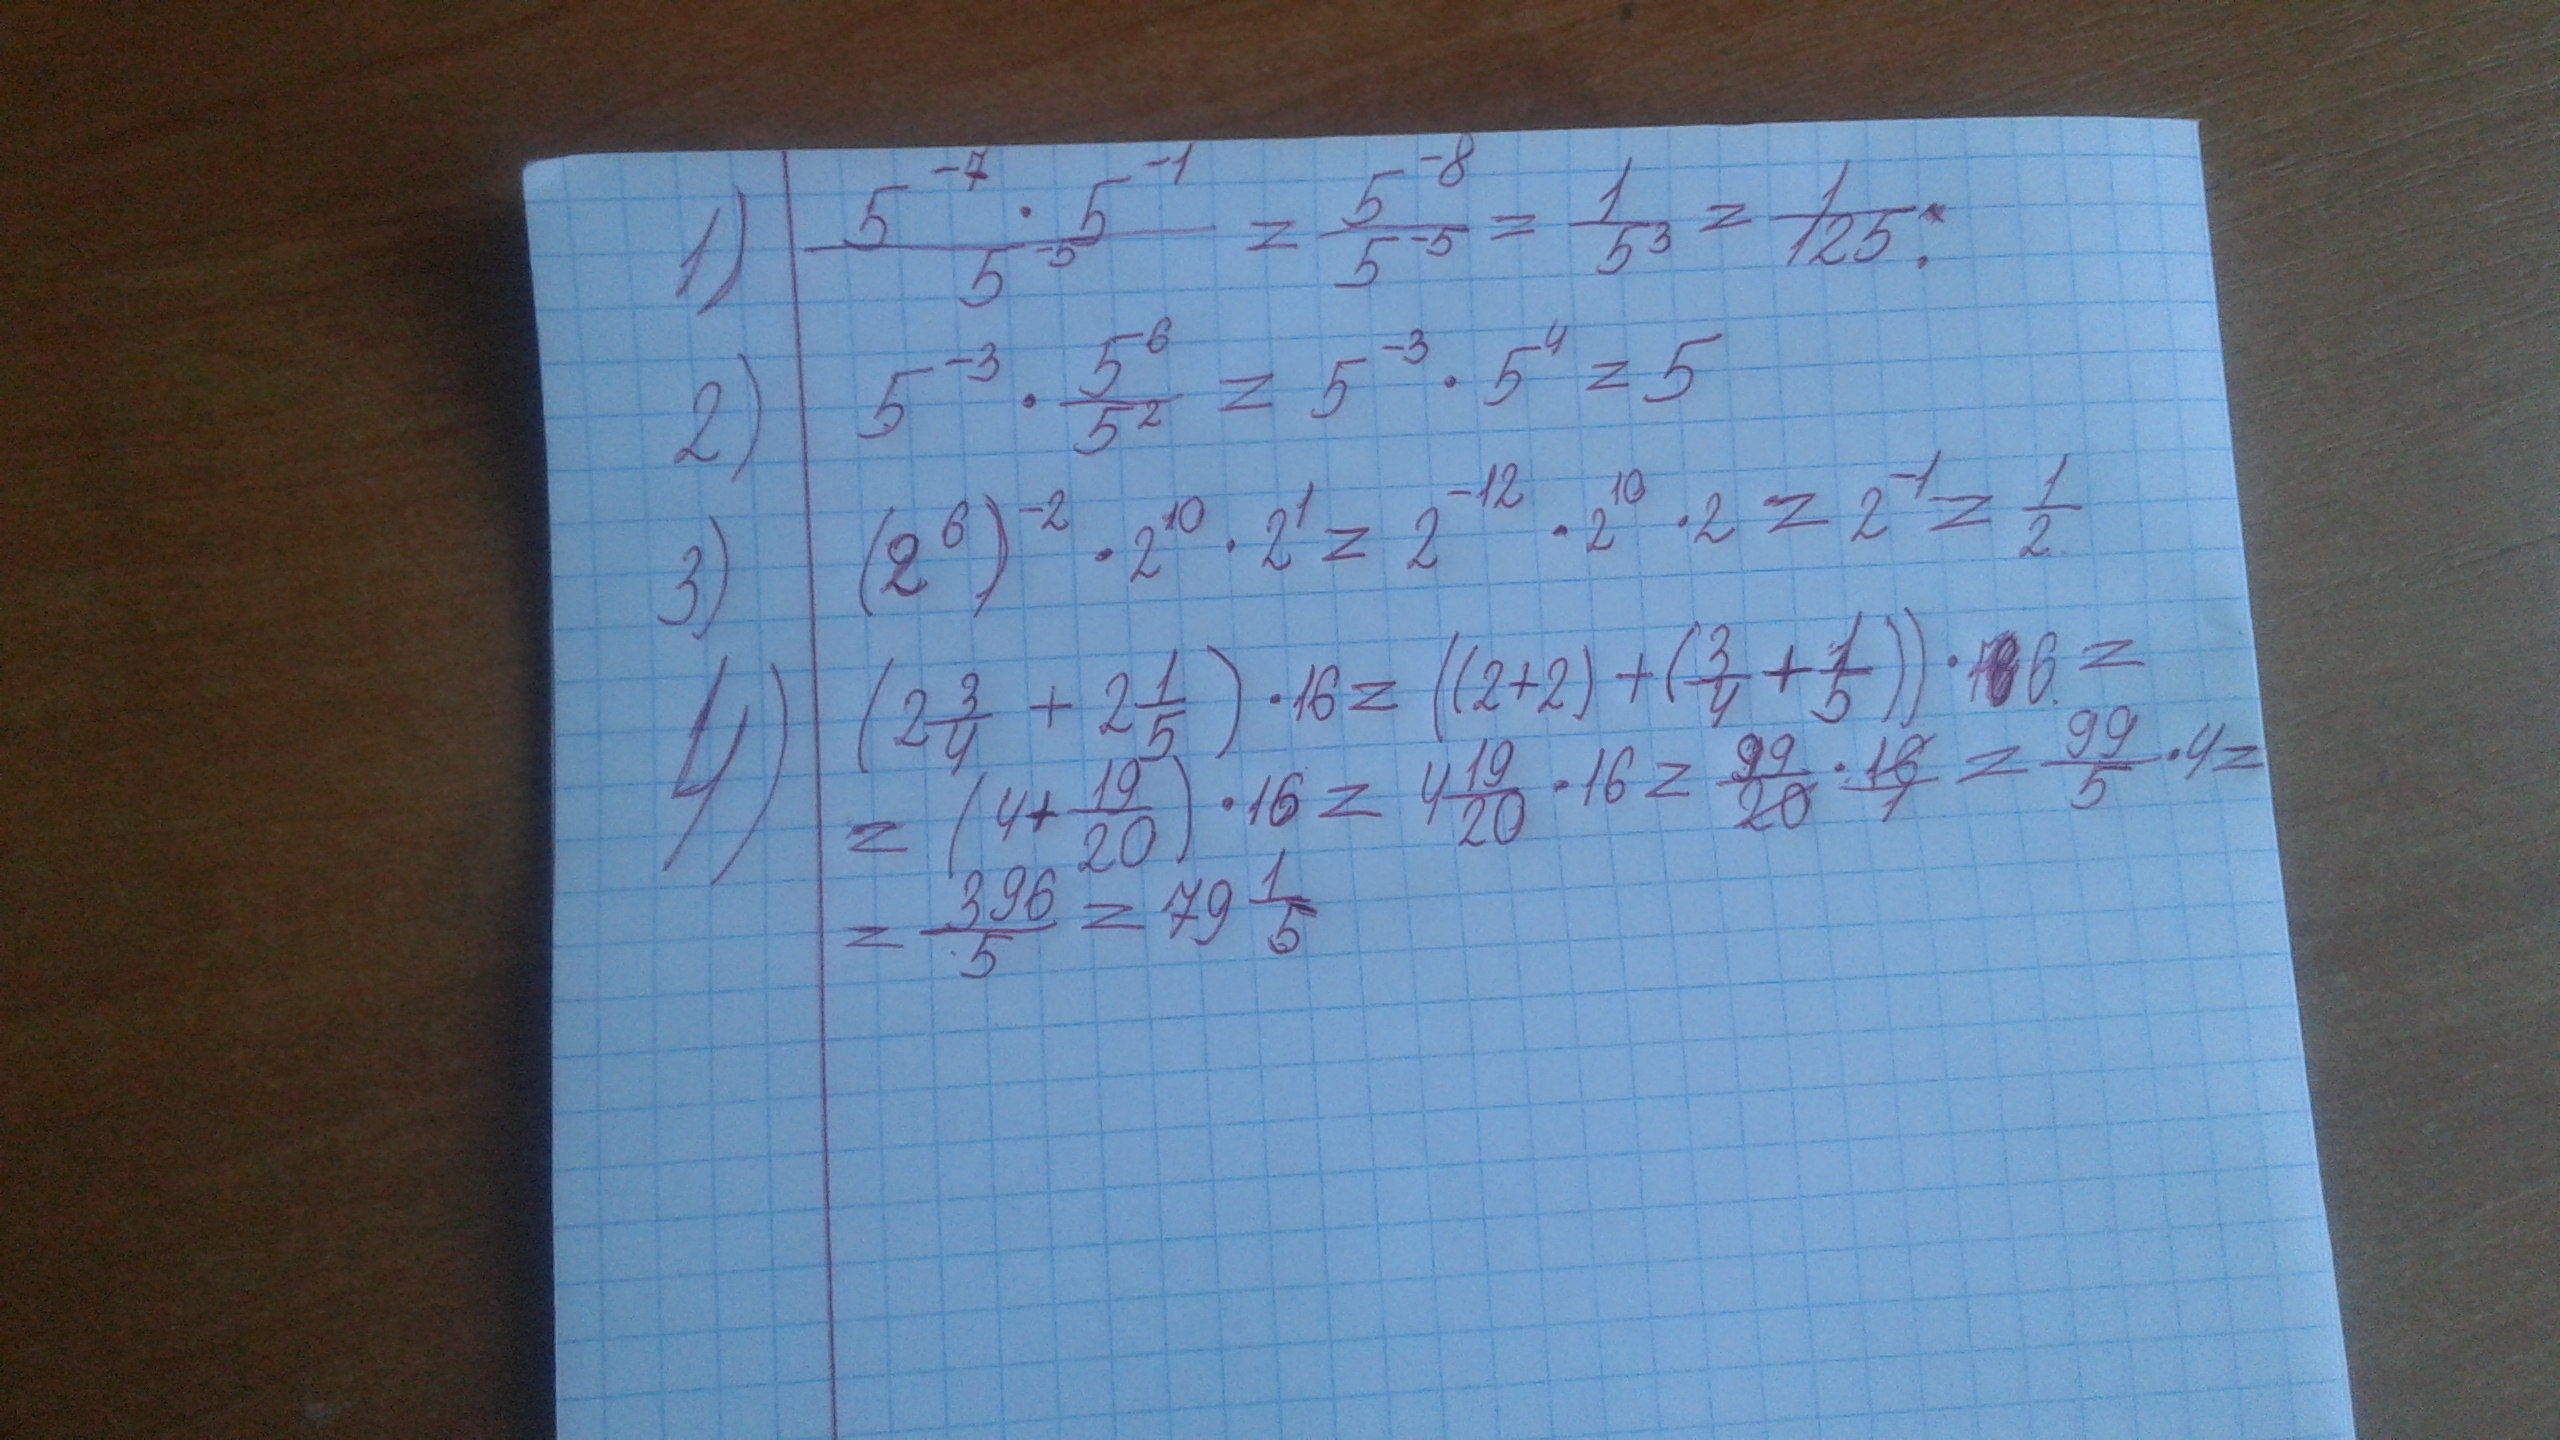 1) \frac{5^{-7} \cdot 5^{-1}}{5^{-5}} = \frac{5^{-8}}{5^{-5}} = \frac{1}{5^3} = \frac{1}{125};
2) 5^{-3} \cdot \frac{5^6}{5^2} = 5^{-3} \cdot 5^4 = 5
3) (2^6)^{-2} \cdot 2^{10} \cdot 2^1 = 2^{-12} \cdot 2^{10} \cdot 2 = 2^{-1} = \frac{1}{2}
4) (2\frac{3}{4} + 2\frac{1}{5}) \cdot 16 = ((2+2) + (\frac{3}{4} + \frac{1}{5})) \cdot 16 =
= (4 + \frac{19}{20}) \cdot 16 = 4\frac{19}{20} \cdot 16 = \frac{99}{20} \cdot \frac{16}{1} = \frac{99}{5} \cdot 4 =
= \frac{396}{5} = 79\frac{1}{5}